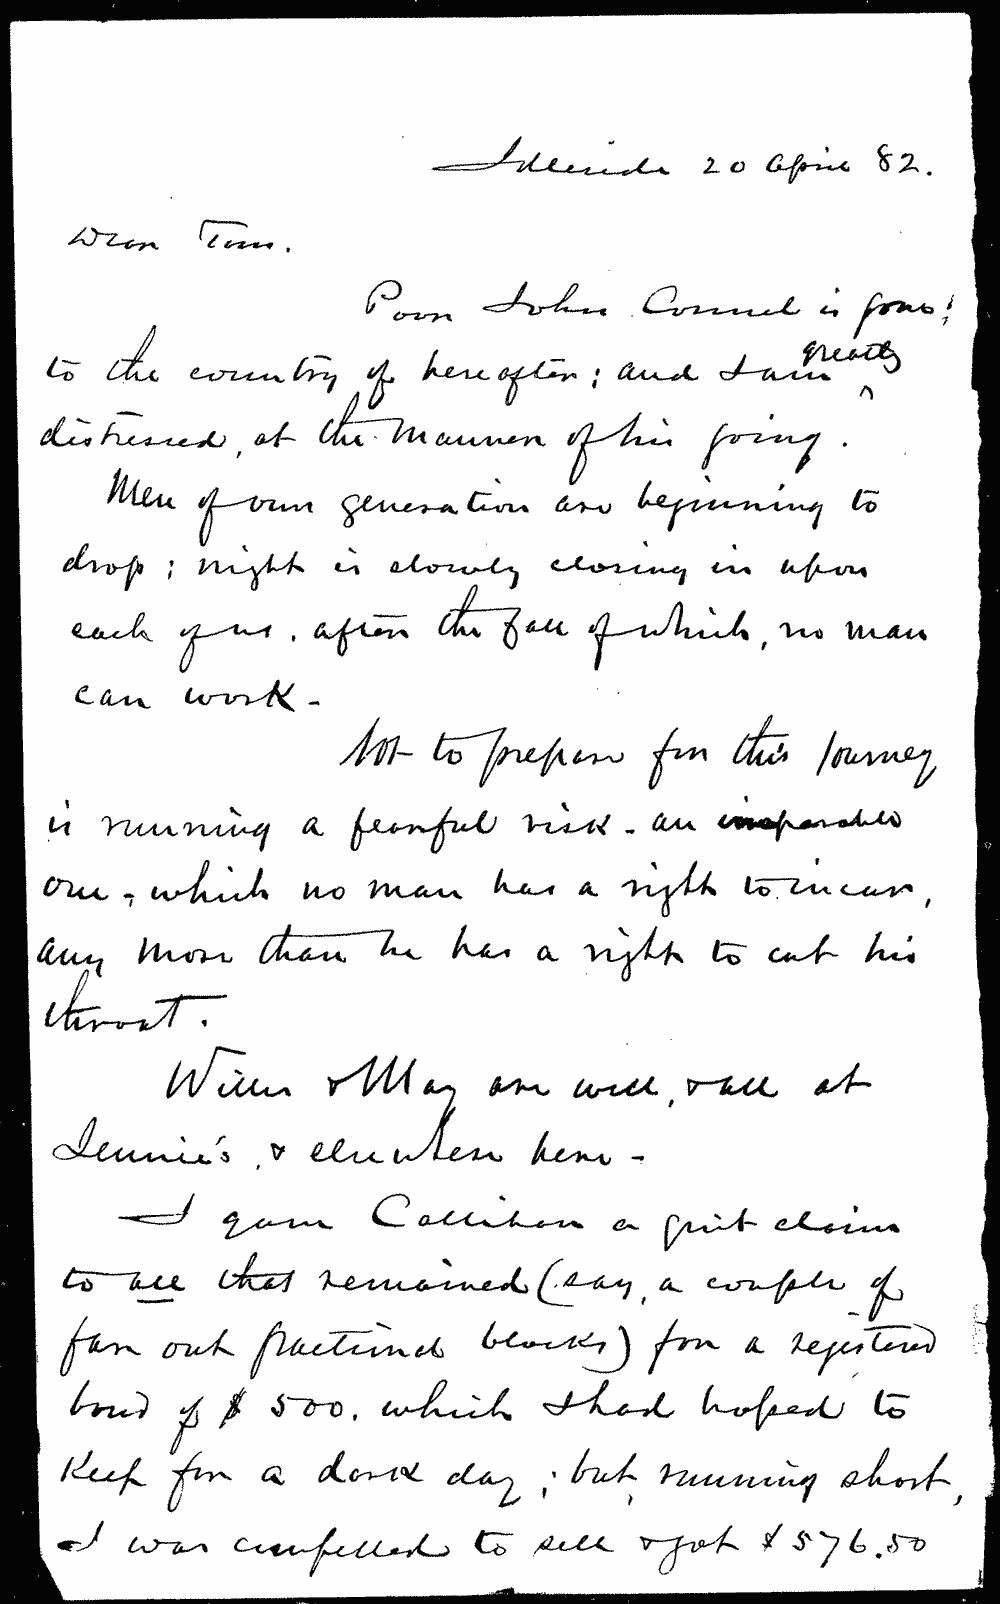 20 April 82.
Dear Tom.
Poor John Connel is gone!
to the country of hereafter; and I am greatly
distressed, at the manner of his going.
Men of our generation are beginning to
drop; night is slowly closing in upon
each of us, after the fall of which, no man
can work-
Not to prepare for this journey
is running a fearful risk - an
one, which no man has a right to incur,
any more than he has a right to cut his
throat.
Willis & May are well, & all at
Jennie's, & elsewhere here-
I gave Callihan a quit claim
to all that remained (say, a couple of
far out fractional blocks) for a registered
bond of $500. which I had hoped to
keep for a dark day; but, running short,
I was compelled to sell & got $576.50